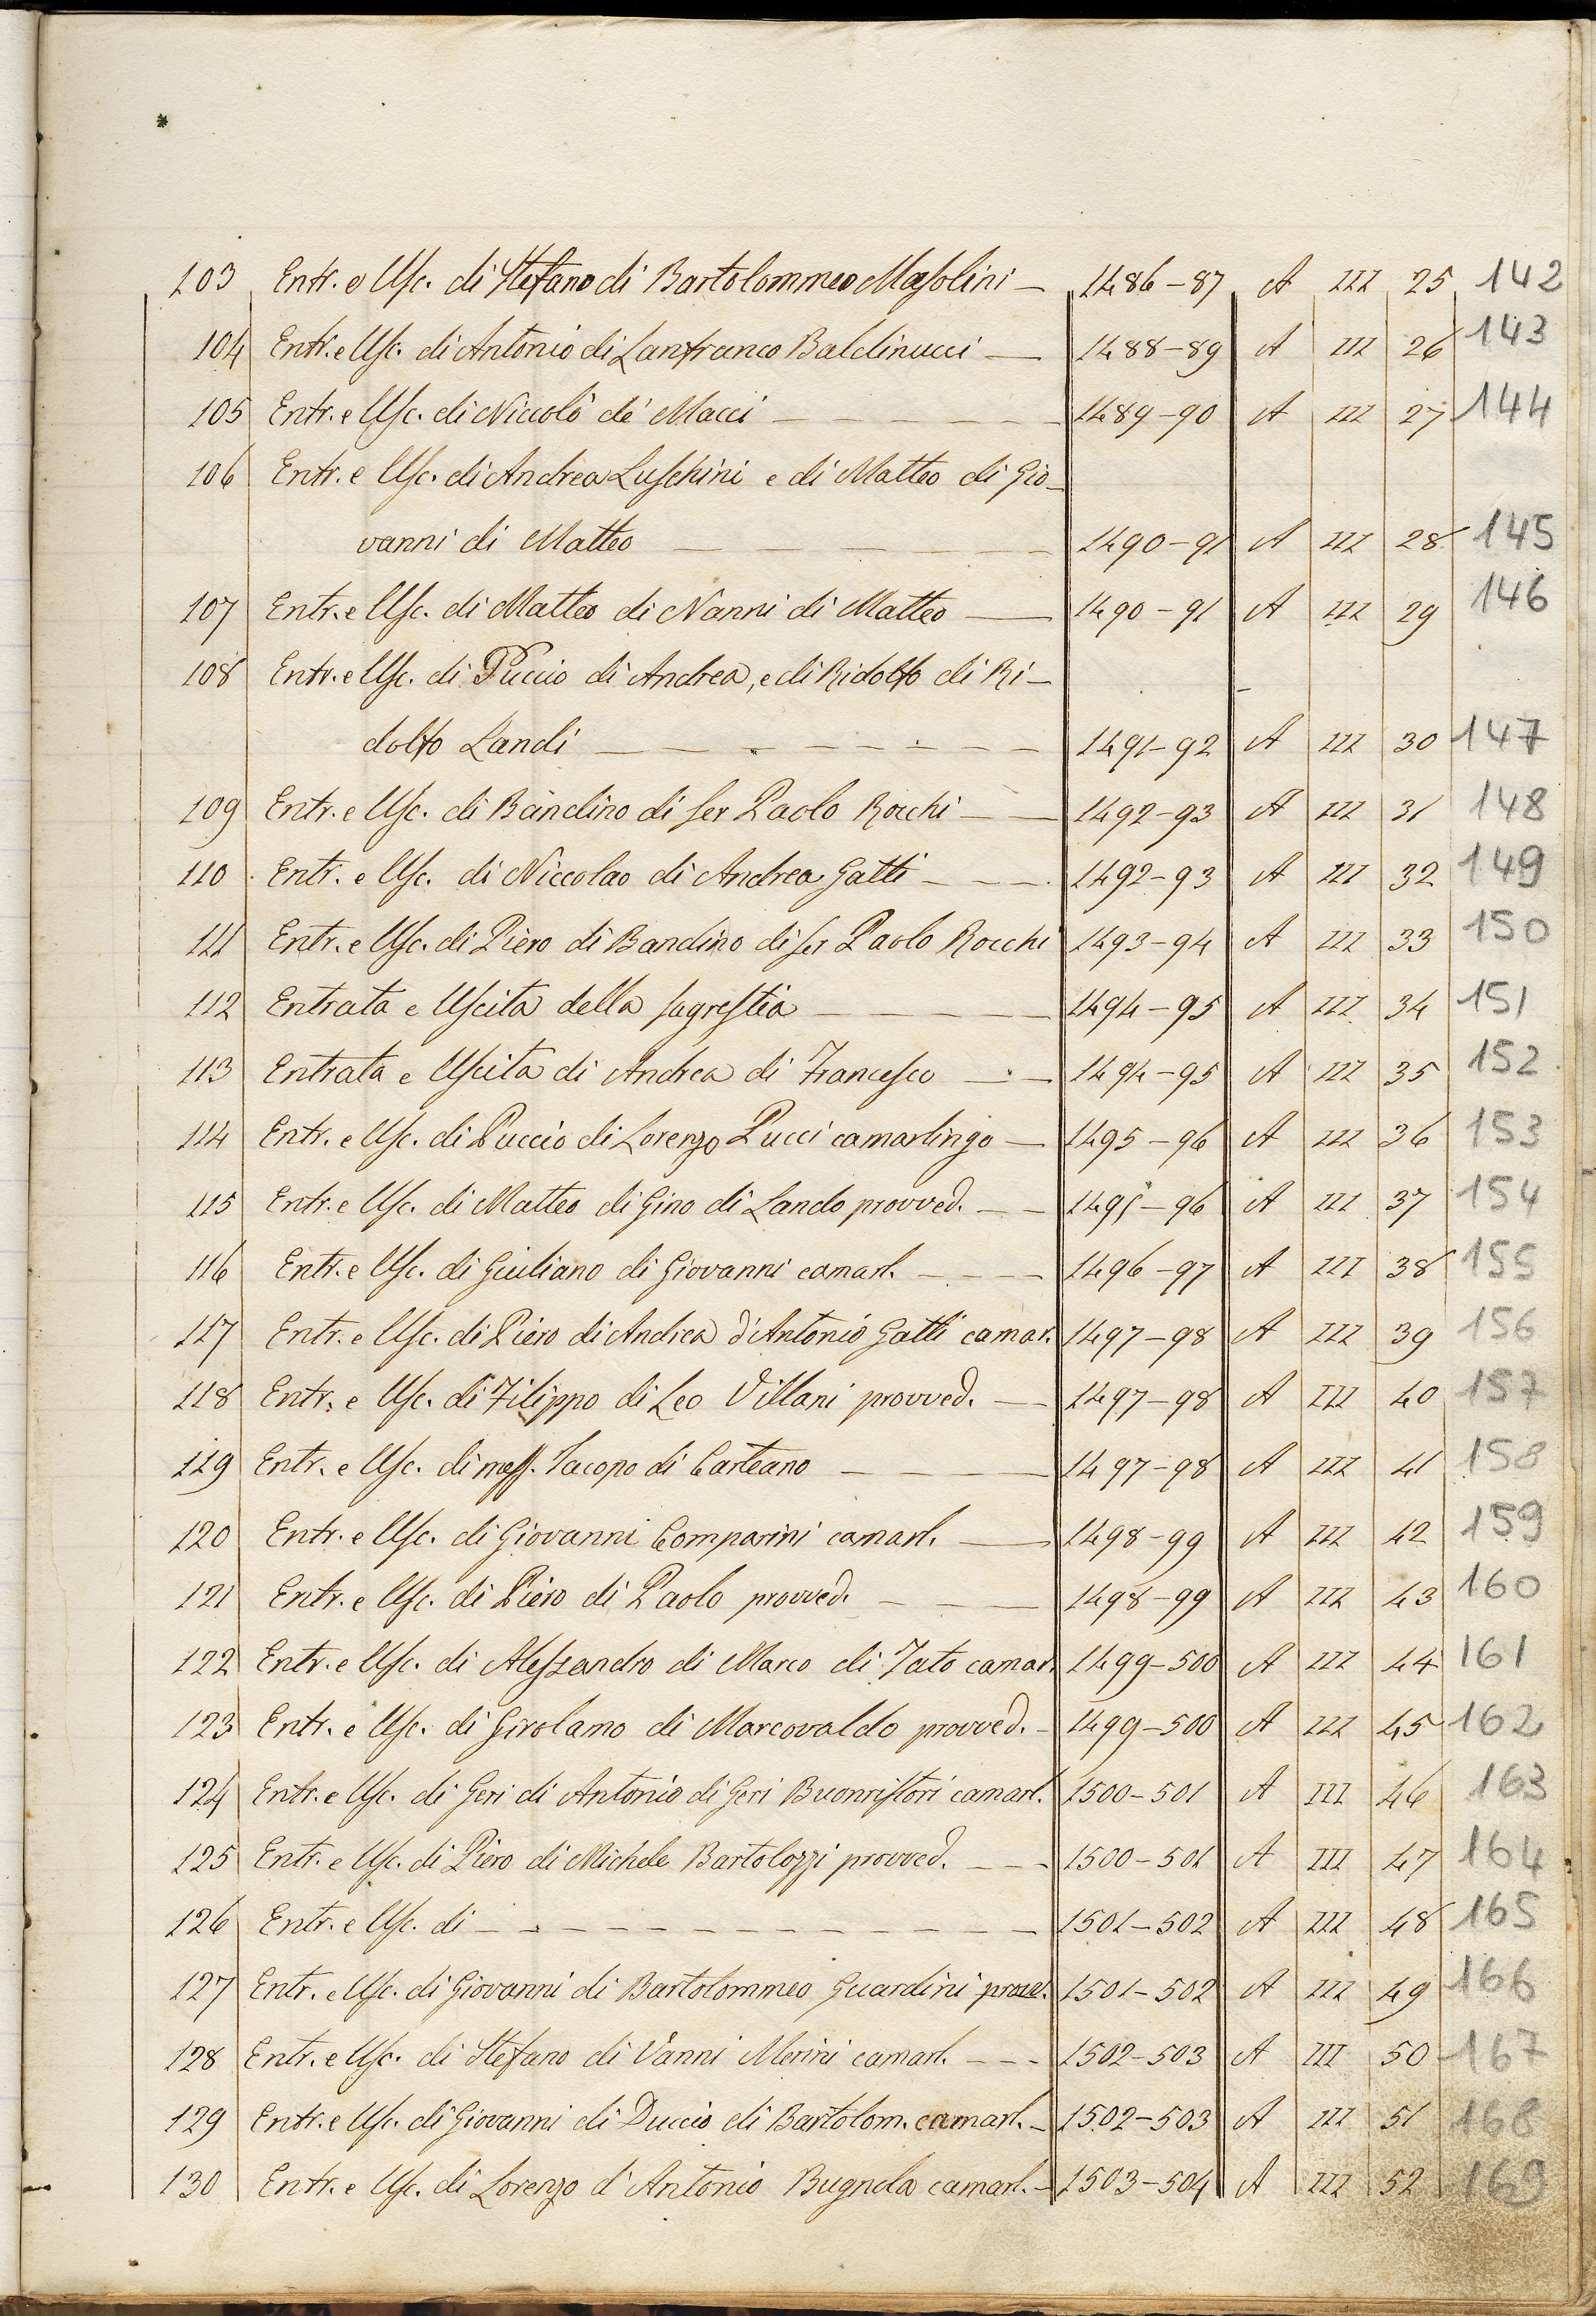 103 Entr. e Usc. di Stefano di Bartolommeo Masolini — 1486-87 A III 25 142
104 Entr. e Usc. di Antonio di Lanfranco Baldinucci — 1488-89 A III 26 143
105 Entr. e Usc. di Niccolò de' Macci — — — — — 1489-90 A III 27 144
106 Entr. e Usc. di Andrea Luschini e di Matteo di Gio-
vanni di Matteo — — — — — — 1490-91 A III 28 145
107 Entr. e Usc. di Matteo di Nanni di Matteo — 1490-91 A III 29 146
108 Entr. e Usc. di Puccio di Andrea, e di Ridolfo di Ri-
dolfo Landi — — — — — — — — 1491-92 A III 30 147
109 Entr. e Usc. di Bandino di ser Paolo Rocchi — — 1492-93 A III 31 148
110 Entr. e Usc. di Niccolao di Andrea Gatti — — — 1492-93 A III 32 149
111 Entr. e Usc. di Piero di Bandino di ser Paolo Rocchi 1493-94 A III 33 150
112 Entrata e Uscita della sagrestia — — — — — 1494-95 A III 34 151
113 Entrata e Uscita di Andrea di Francesco — — 1494-95 A III 35 152
114 Entr. e Usc. di Puccio di Lorenzo Pucci camarlingo — 1495-96 A III 36 153
115 Entr. e Usc. di Matteo di Gino di Lando provved. — — 1495-96 A III 37 154
116 Entr. e Usc. di Giuliano di Giovanni camarl. — — — 1496-97 A III 38 155
117 Entr. e Usc. di Piero di Andrea d'Antonio Gatti camar. 1497-98 A III 39 156
118 Entr. e Usc. di Filippo di Leo Villani provved. — — 1497-98 A III 40 157
119 Entr. e Usc. di mess. Iacopo di Carteano — — — — 1497-98 A III 41 158
120 Entr. e Usc. di Giovanni Comparini camarl. — 1498-99 A III 42 159
121 Entr. e Usc. di Piero di Paolo provved. — — — 1498-99 A III 43 160
122 Entr. e Usc. di Alessandro di Marco di Tato camar. 1499-500 A III 44 161
123 Entr. e Usc. di Girolamo di Marcovaldo provved. - 1499-500 A III 45 162
124 Entr. e Usc. di Geri di Antonio di Geri Buonristori camarl. 1500-501 A III 46 163
125 Entr. e Usc. di Piero di Michele Bartolozzi provved. — — — 1500-501 A III 47 164
126 Entr. e Usc. di — — — — — — — — — — 1501-502 A III 48 165
127 Entr. e Usc. di Giovanni di Bartolommeo Guardini prove. 1501-502 A III 49 166
128 Entr. e Usc. di Stefano di Vanni Merini camarl. — — — 1502-503 A III 50 167
129 Entr. e Usc. di Giovanni di Duccio di Bartolom. camarl. - 1502-503 A III 51 168
130 Entr. e Usc. di Lorenzo d'Antonio Bugnola camarl. - 1503-504 A III 52 169